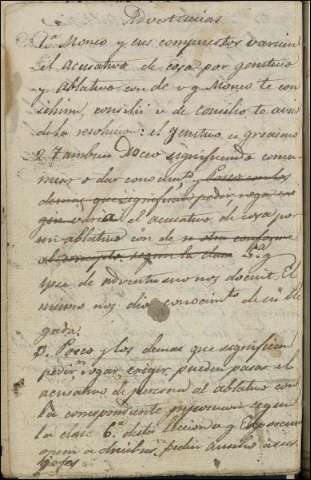 Advertencias
1ª Moneo y sus compuestos varian
el acusativo de cosa por genitivo
y ablativo con de v g Moneo te con
silium, consilii v de consilio te avi
so la resolucion: el genitivo es grecismo
2ª Tambien Doceo significando comu
nicar o dar conocimto, Posco con los
demas que significan pedir rogar
varia el acusativo de cosa por
un ablativo con de
v. g.
ipse de adventu meo nos docuit. El
mismo nos dio conocimto de mi lle
gada.
3. Posco y los demas que significan
pedir rogar, exigir, pueden pasar el
acusativo de persona al ablativo con
la correspondiente preposicion segun
la clase 6ª de esta leccion v g Ego posco
opem a ducibus, pedir auxilio a sus
gefes